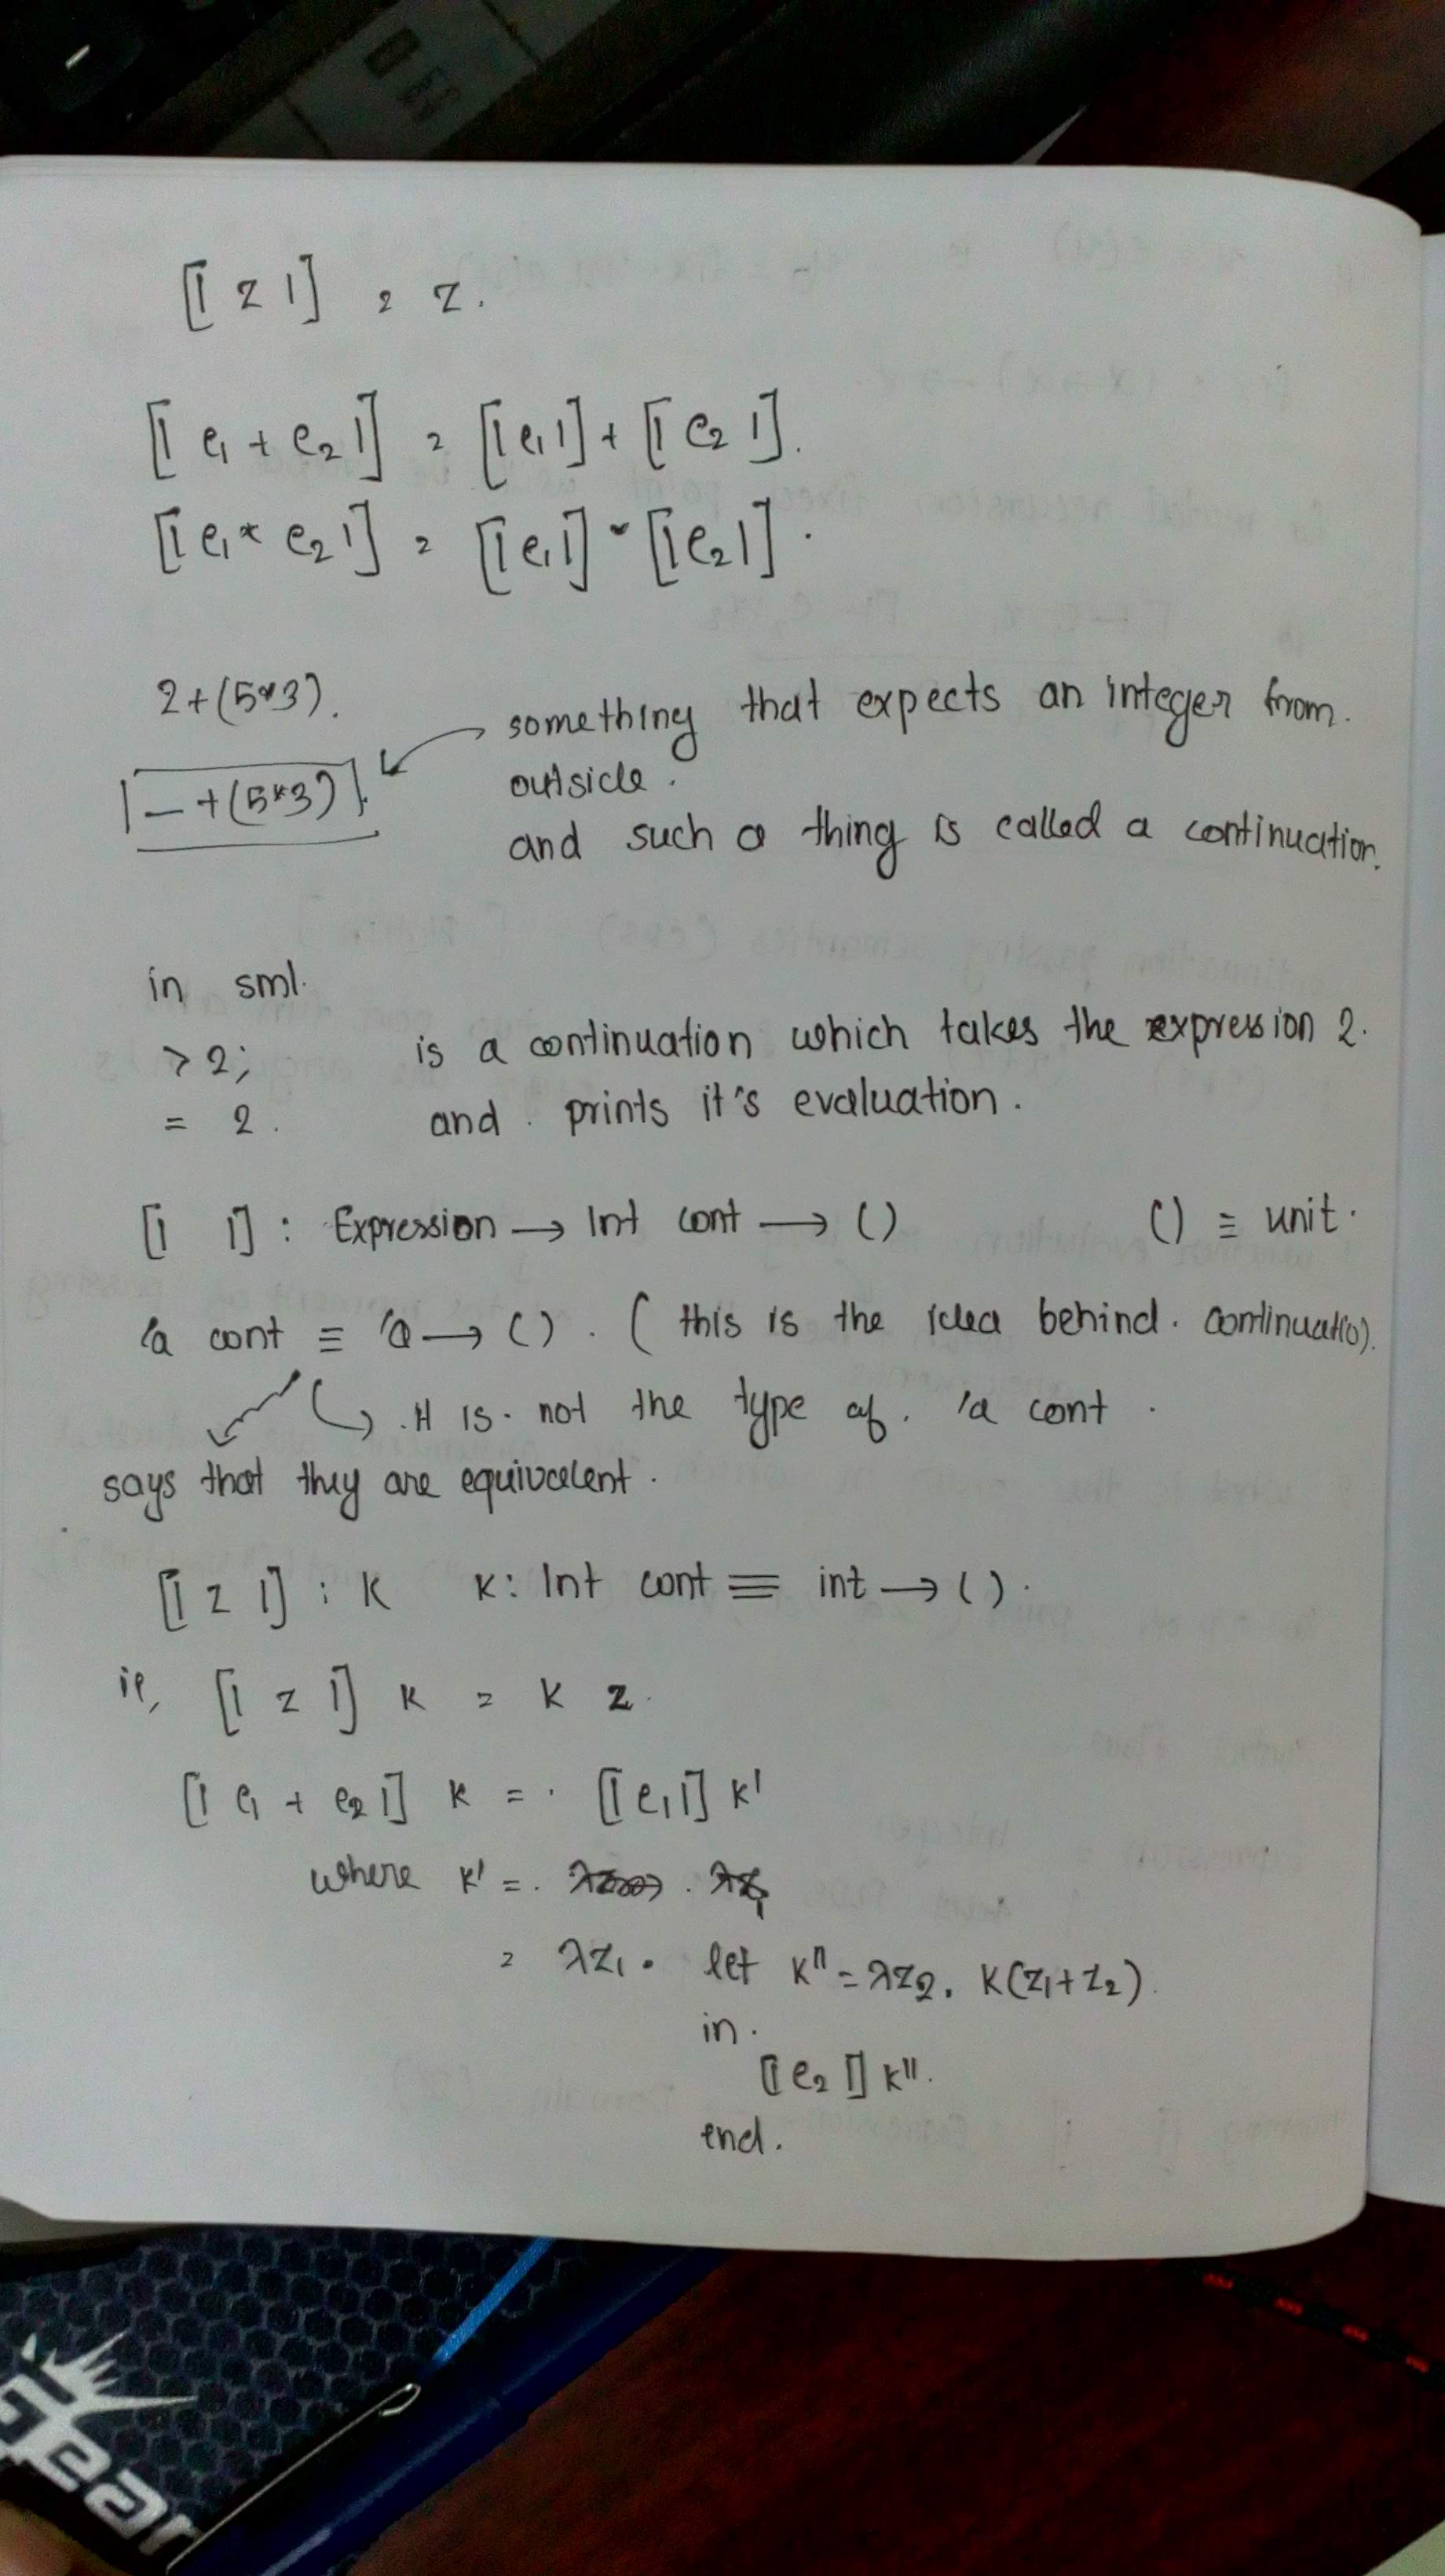 [| z |] = z.
[| e₁ + e₂ |] = [| e₁ |] + [| e₂ |].
[| e₁ * e₂ |] = [| e₁ |] * [| e₂ |].
2+(5*3).
_ +(5*3)
something that expects an integer from.
outside.
and such a thing is called a continuation.
in sml.
> 2; is a continuation which takes the expression 2.
= 2. and prints it's evaluation.
[| |] : Expression → Int cont → () () ≡ unit.
'a cont ≡ 'a → (). ( this is the idea behind. continuatio).
It is not the type of. 'a cont.
says that they are equivalent.
[| z |] : K K: Int cont ≡ int → ().
ie, [| z |] K = K z.
[| e₁ + e₂ |] K = [| e₁ |] K'
where K' =.
= λz₁. let K" = λz₂. K(z₁+z₂).
in.
[| e₂ |] K".
end.
Gear